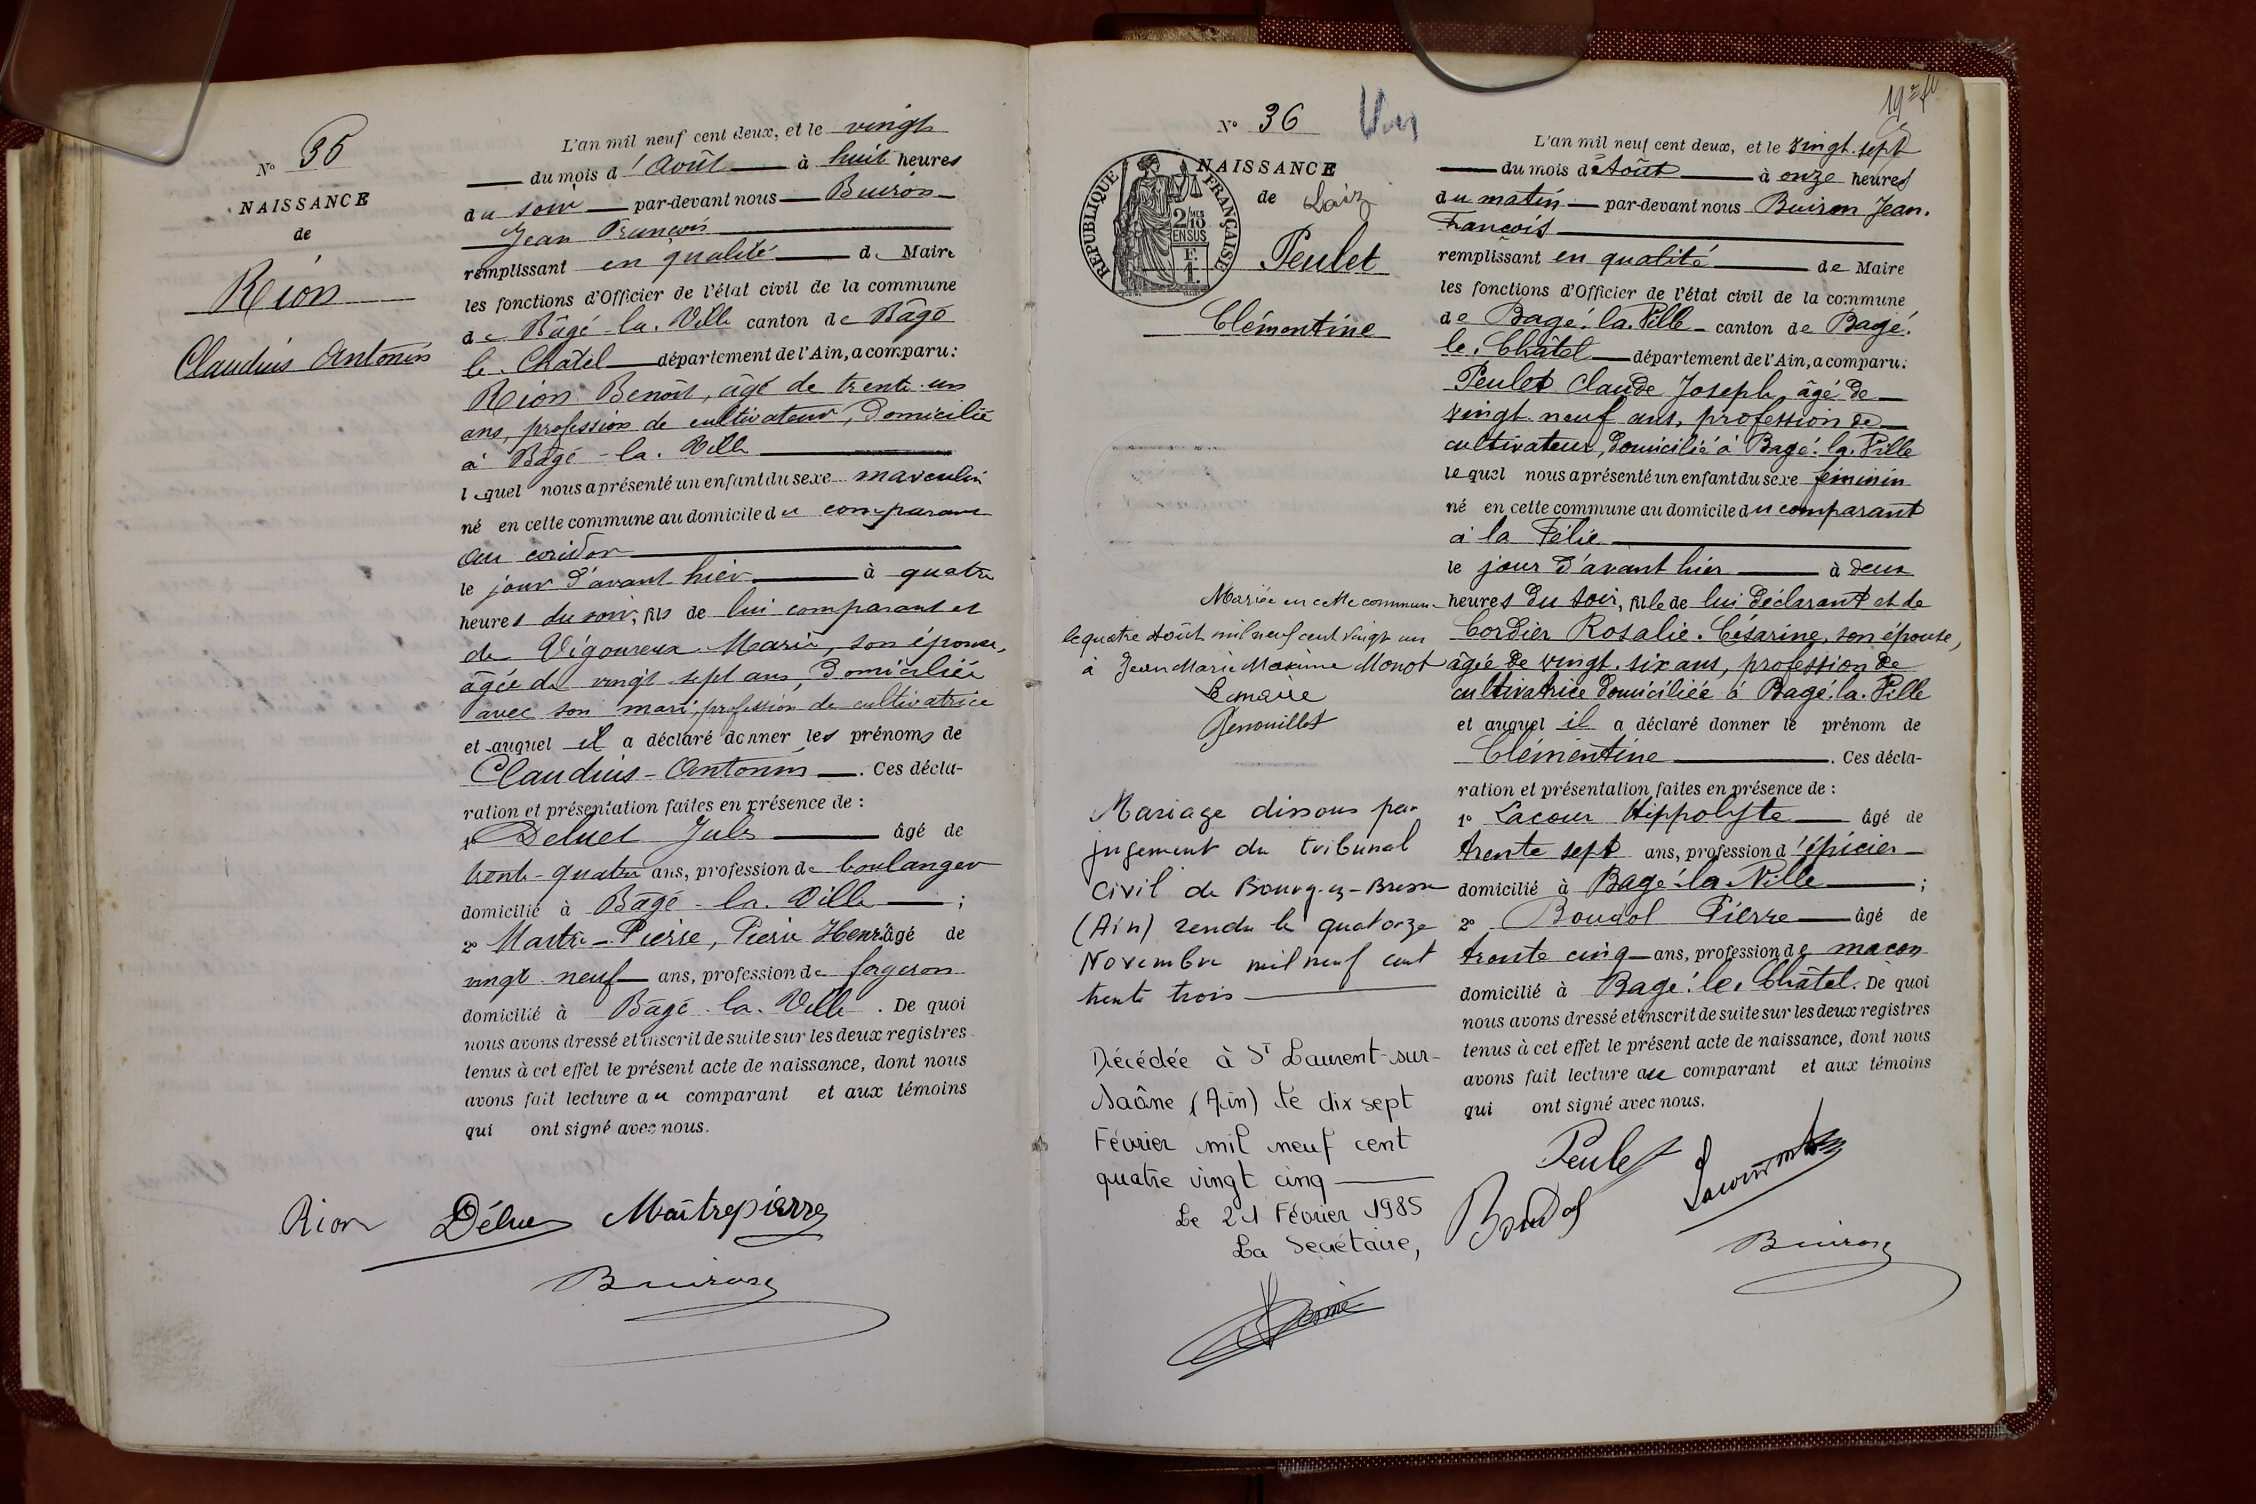 N° 35
NAISSANCE
de
Rion
Claudius Antonin
L'an mil neuf cent deux, et le vingt
du mois d'Août à huit heures
du soir par-devant nous Buiron
Jean François
remplissant en qualité de Maire
les fonctions d'Officier de l'état civil de la commune
de Bâgé-la-Ville canton de Bâgé
le-Châtel département de l'Ain, a comparu:
Rion Benoît, âgé de trente-un
ans, profession de cultivateur, domicilié
à Bâgé-la-Ville
lequel nous a présenté un enfant du sexe masculin
né en cette commune au domicile du comparant
au coridor
le jour d'avant hier à quatre
heures du soir, fils de lui comparant et
de Vigoureux Marie, son épouse,
âgée de vingt-sept ans, domiciliée
avec son mari, profession de cultivatrice
et auquel il a déclaré donner les prénoms de
Claudius-Antonin. Ces décla-
ration et présentation faites en présence de :
1° Deluet Jules âgé de
trente-quatre ans, profession de boulanger
domicilié à Bâgé-la-Ville ;
2° Maitre-Pierre, Pierre Henri âgé de
vingt-neuf ans, profession de forgeron
domicilié à Bâgé-la-Ville. De quoi
nous avons dressé et inscrit de suite sur les deux registres
tenus à cet effet le présent acte de naissance, dont nous
avons fait lecture au comparant et aux témoins
qui ont signé avec nous.
Rion Maîtrepierre
Buiron
19e
N° 36
NAISSANCE
de Laiz
RÉPUBLIQUE FRANÇAISE
2/10MES
EN SUS
1F.
Peulet
Clémentine
L'an mil neuf cent deux, et le vingt-sept
du mois d'Août à onze heures
du matin par-devant nous Buiron Jean-
François
remplissant en qualité de Maire
les fonctions d'Officier de l'état civil de la commune
de Bagé-la-Ville canton de Bagé-
le-Châtel département de l'Ain, a comparu:
Peulet Claude Joseph, âgé de
vingt-neuf ans, profession de
cultivateur, domicilié à Bagé-la-Ville
lequel nous a présenté un enfant du sexe féminin
né en cette commune au domicile du comparant
à la Félie
le jour d'avant hier à deux
heures du soir, fille de lui déclarant et de
Cordier Rosalie-Césarine, son épouse,
âgée de vingt-six ans, profession de
cultivatrice domiciliée à Bagé-la-Ville
et auquel il a déclaré donner le prénom de
Clémentine. Ces décla-
ration et présentation faites en présence de :
1° Lacour Hippolyte âgé de
trente sept ans, profession d'épicier
domicilié à Bagé-la-Ville ;
2° Boudol Pierre âgé de
trente cinq ans, profession de maçon
domicilié à Bagé-le-Châtel. De quoi
nous avons dressé et inscrit de suite sur les deux registres
tenus à cet effet le présent acte de naissance, dont nous
avons fait lecture au comparant et aux témoins
qui ont signé avec nous.
Peulet
Boudol
Buiron
Mariée en cette commune
le quatre Août mil neuf cent vingt un
à Jean Marie Maxime Monot
Le maire
Mariage dissous par
jugement du tribunal
civil de Bourg-en-Bresse
(Ain) rendu le quatorze
Novembre mil neuf cent
trente trois
Décédée à St Laurent-sur-
Saône (Ain) le dix sept
Février mil neuf cent
quatre vingt cinq
Le 21 Février 1985
La Secrétaire,